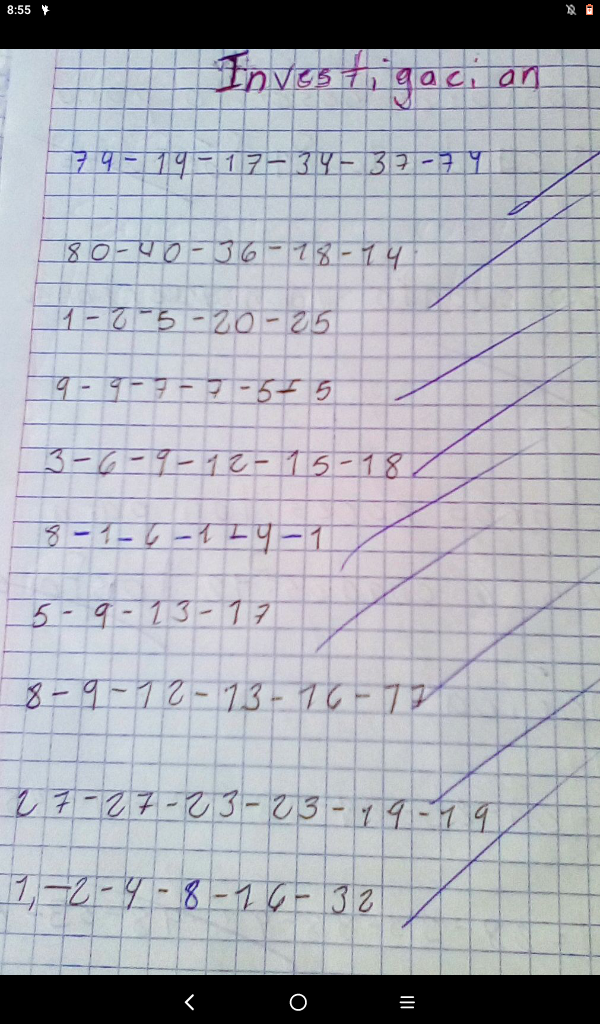 8:55
Investigacian
74-14-17-34-37-74
80-40-36-18-14
1-2-5-20-25
9-9-7-7-5-5
3-6-9-12-15-18
8-1-6-1-4-1
5-9-13-17
8-9-12-13-16-17
27-27-23-23-19-19
1,-2-4-8-16-32